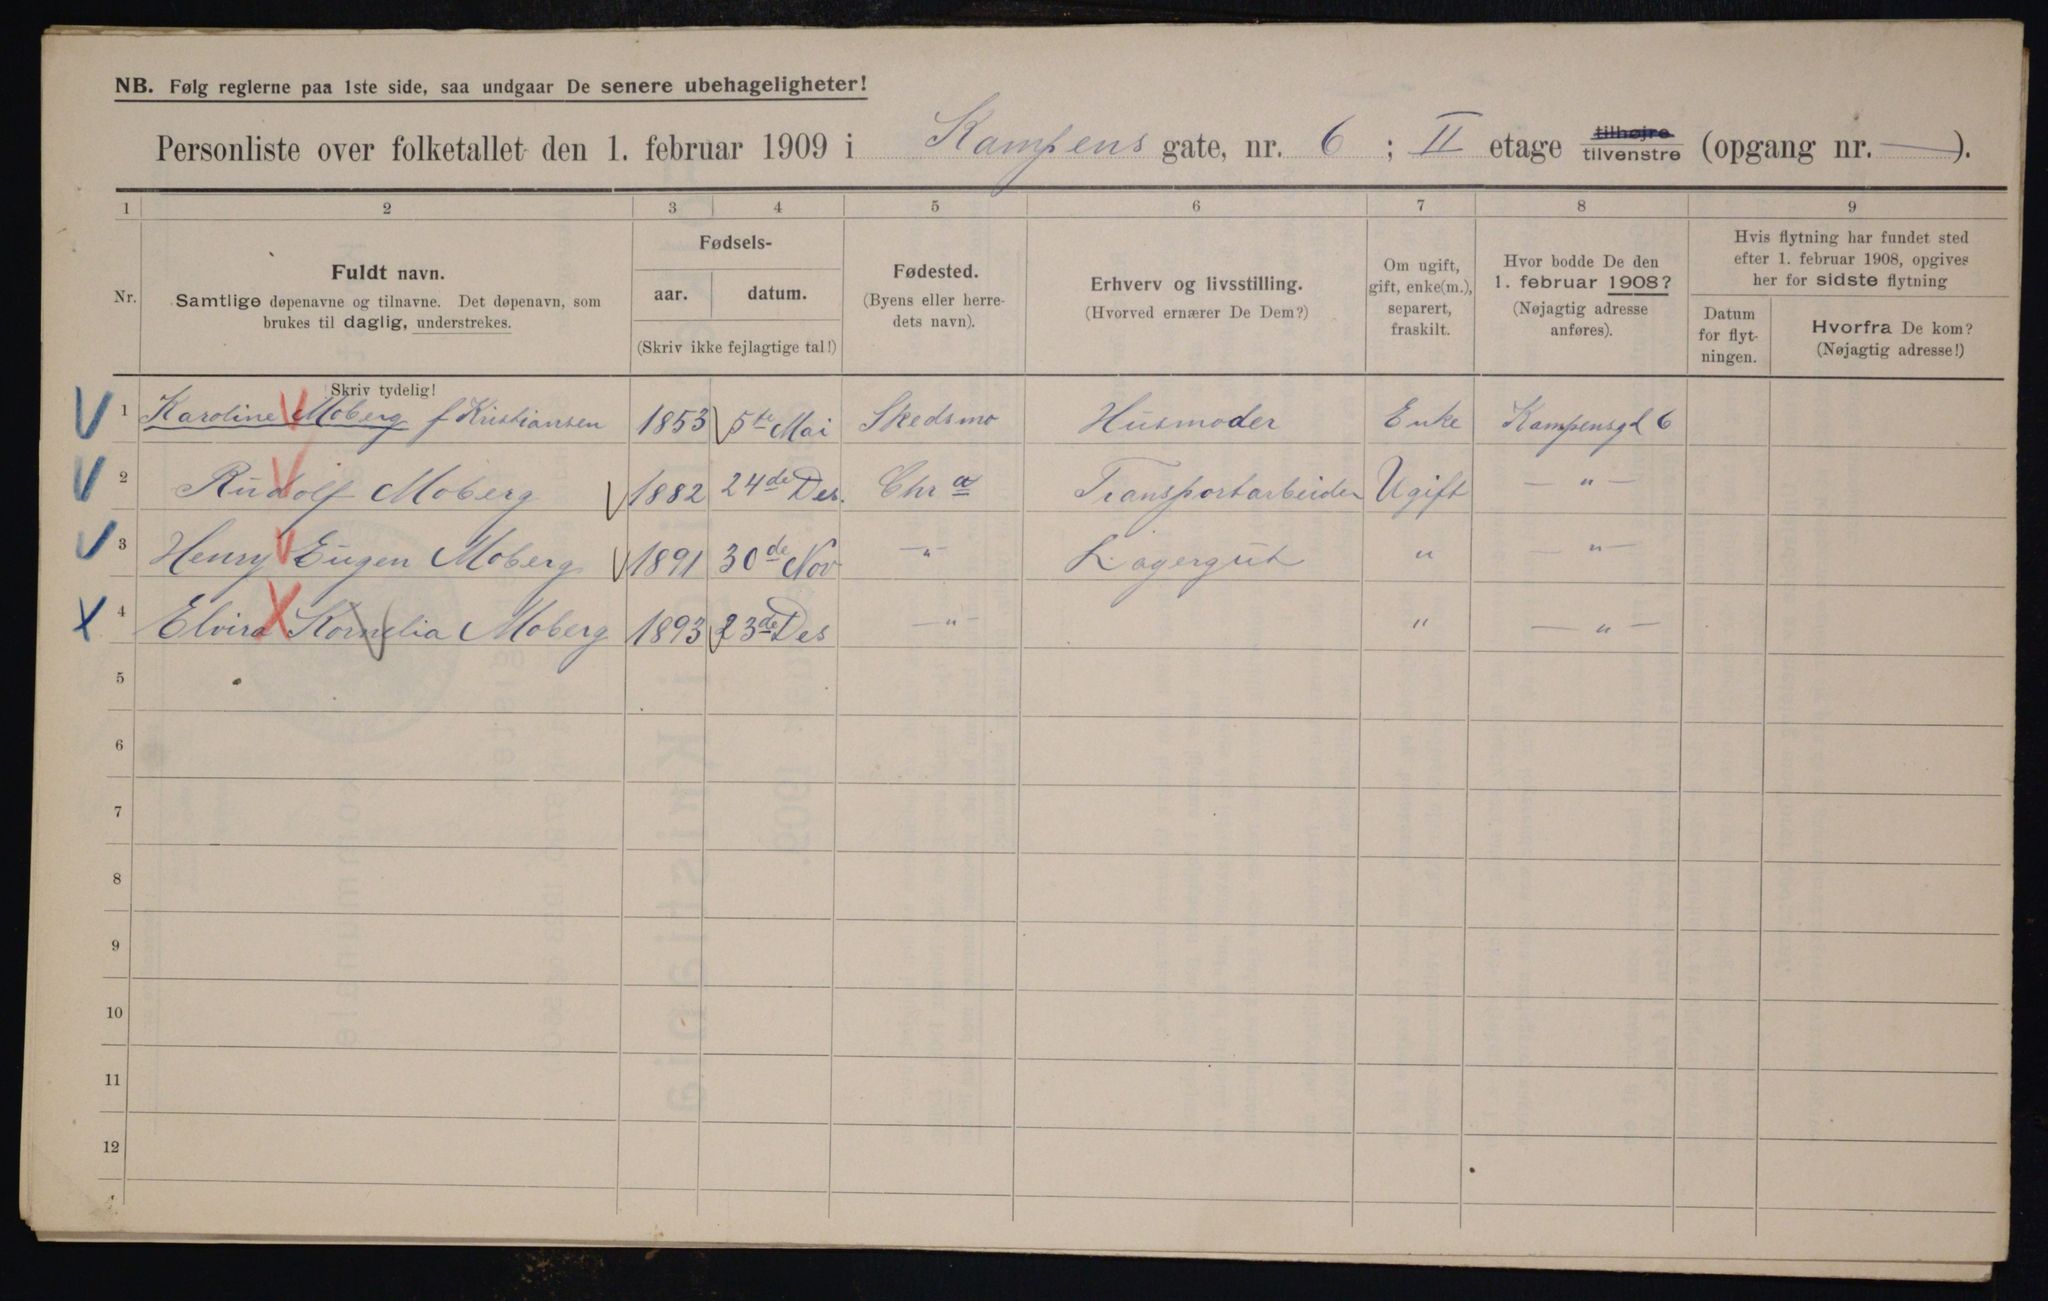 NB. Følg reglerne paa 1ste side, saa undgaar De senere ubehageligheter!
Personliste over folketallet den 1. februar 1909 i Kampens gate, nr. 6 ; II etage tilhøjre tilvenstre (opgang nr. — ).
1 2 3 4 5 6 7 8 9
Nr.
Fuldt navn.
Samtlige døpenavne og tilnavne. Det døpenavn, som
brukes til daglig, understrekes.
Skriv tydelig!
Fødsels-
aar. datum.
(Skriv ikke fejlagtige tal!)
Fødested.
(Byens eller herre-
dets navn).
Erhverv og livsstilling.
(Hvorved ernærer De Dem?)
Om ugift,
gift, enke(m.),
separert,
fraskilt.
Hvor bodde De den
1. februar 1908?
(Nøjagtig adresse
anføres).
Hvis flytning har fundet sted
efter 1. februar 1908, opgives
her for sidste flytning
Datum
for flyt-
ningen.
Hvorfra De kom?
(Nøjagtig adresse!)
1 Karoline Moberg f Kristiansen 1853 5te Mai Skedsmo Husmoder Enke Kampensgd 6
2 Rudolf Moberg 1882 24de Des. Chra Transportarbeider Ugift — " —
3 Henry Eugen Moberg 1891 30de Nov — " — Lagergut " — " —
4 Elvira Kornelia Moberg 1893 23de Des — " — " — " —
5
6
7
8
9
10
11
12